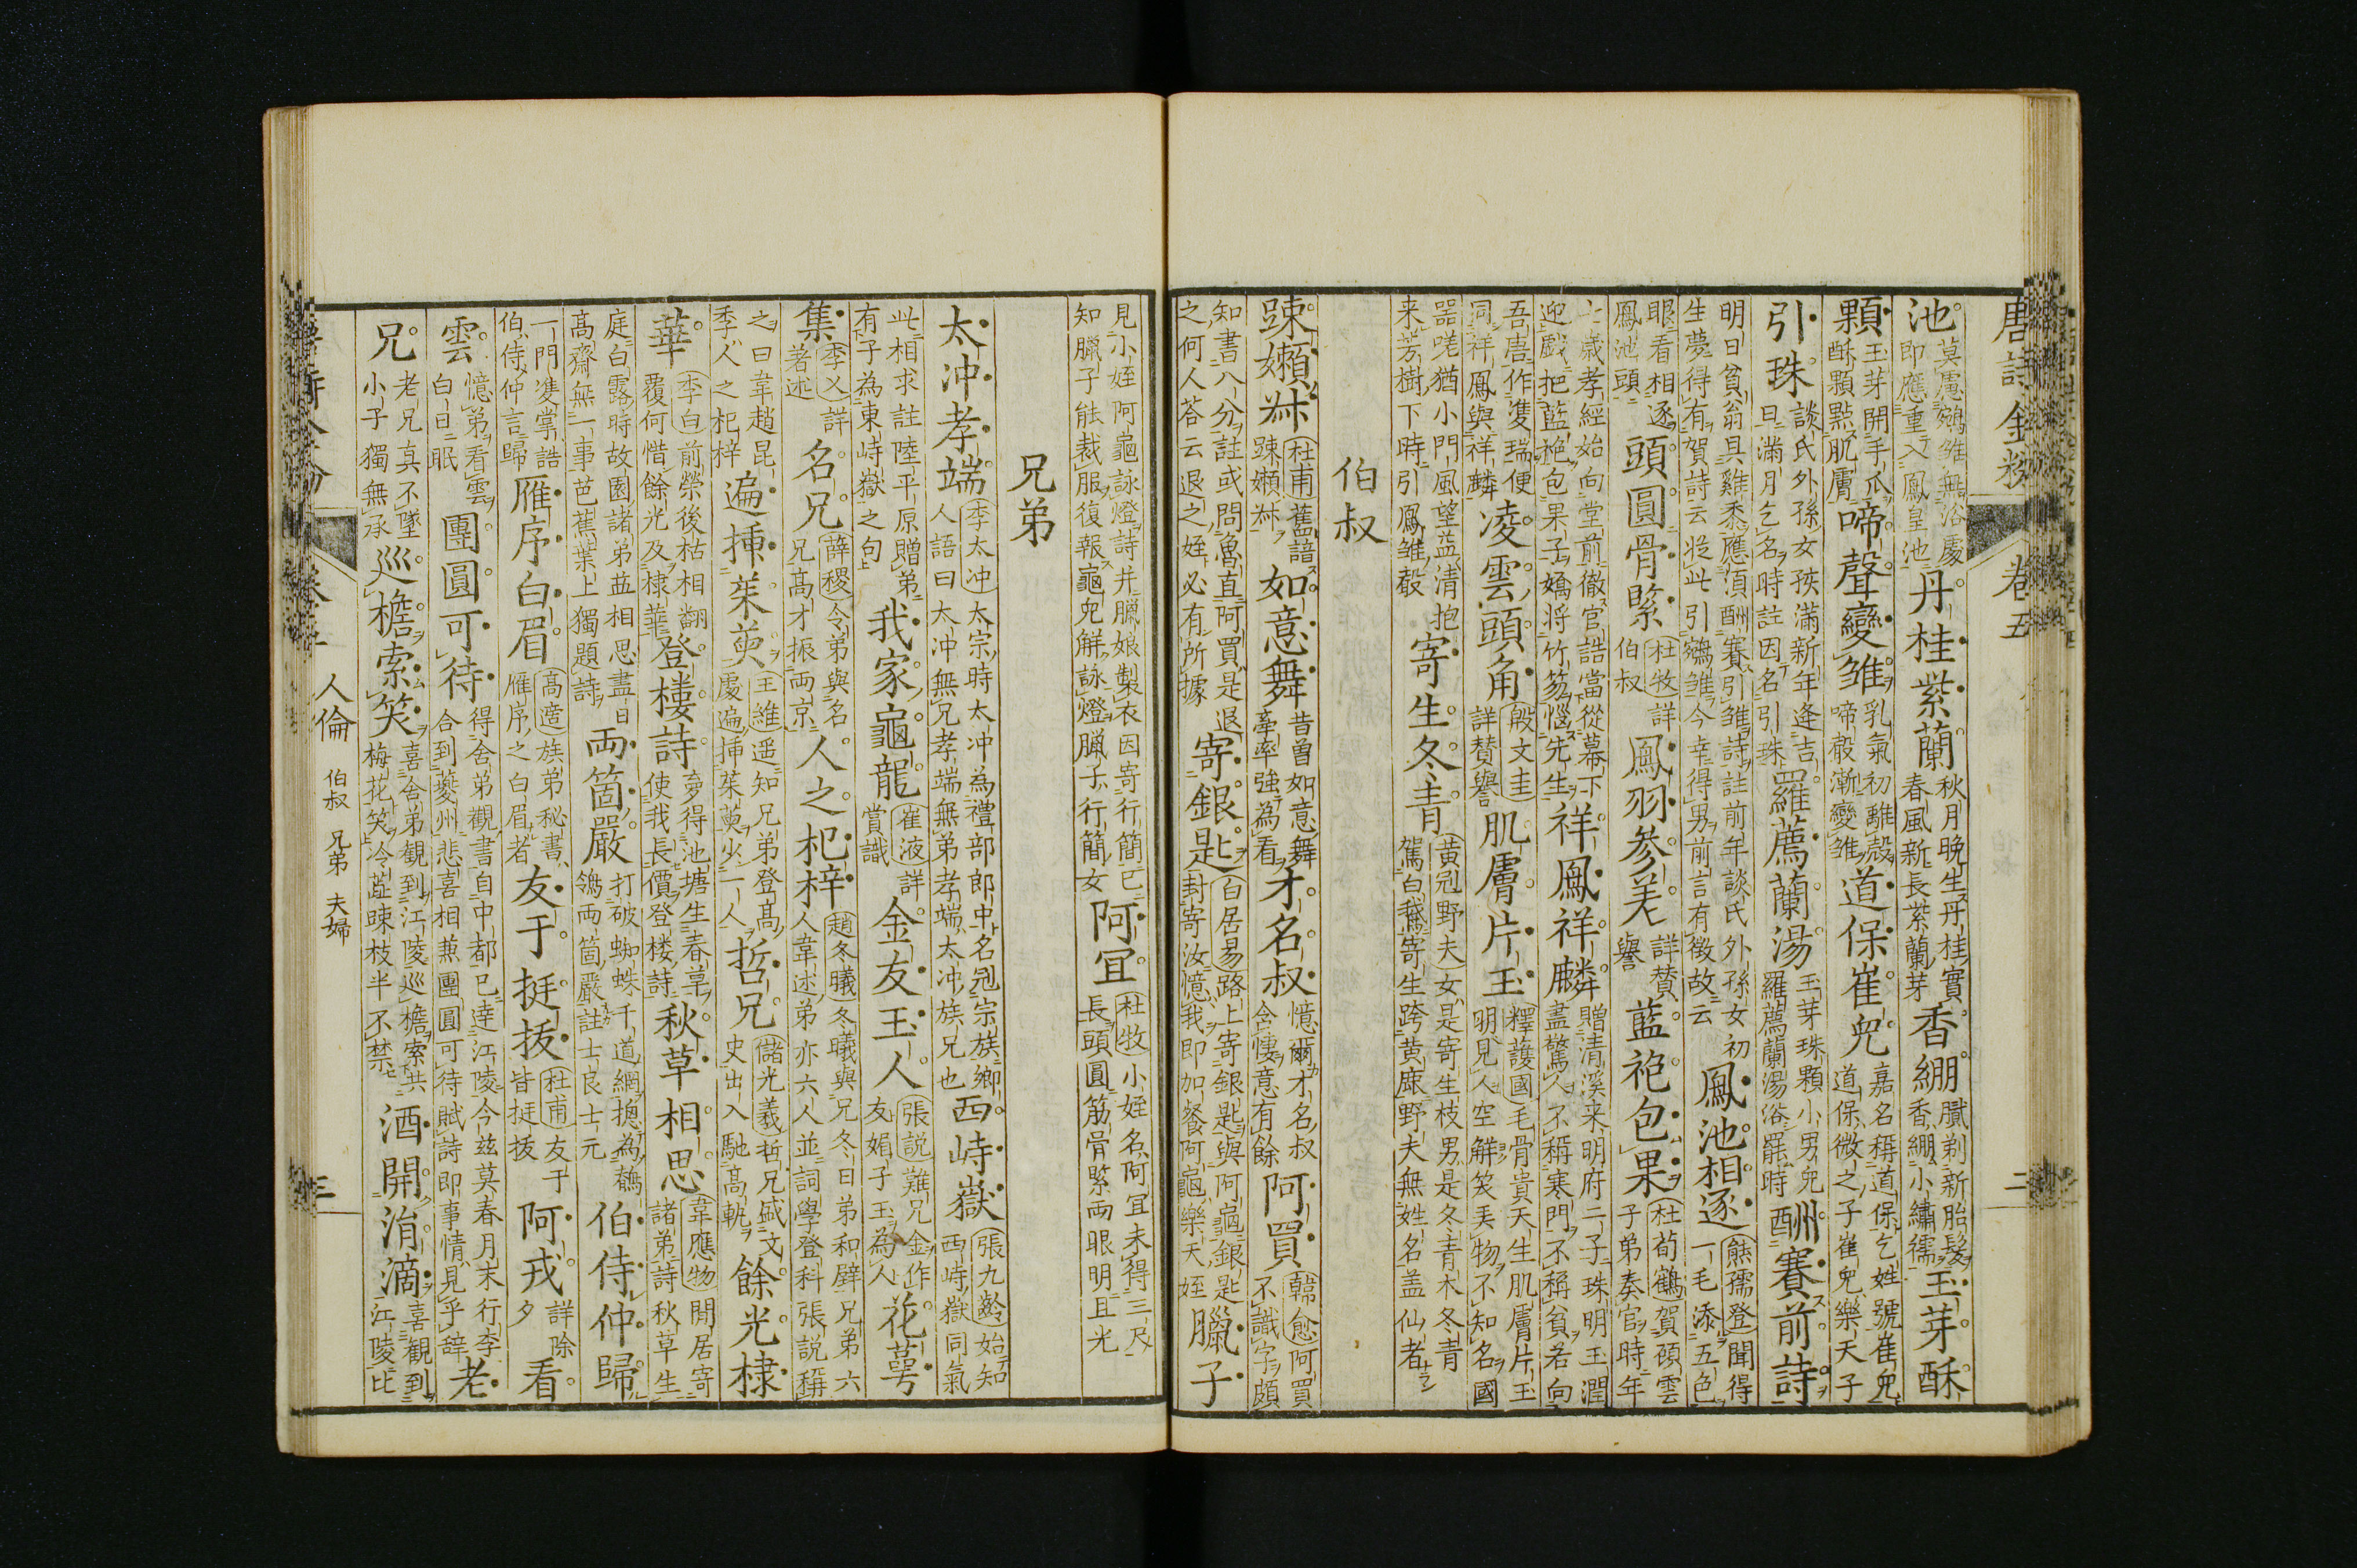 唐詩金粉 卷五 二
池 莫慮鵷雛無浴處 即應重入鳳皇池 丹桂紫蘭 秋月晚生丹桂實 春風新長紫蘭芽 香綳 膩剃新胎髮 香綳小繡襦 玉芽酥
顆 玉芽開手爪 酥顆點肌膚 啼聲變雛 乳氣初離殼 啼聲漸變雛 道保崔兒 嘉名稱道保乞姓號崔兒 道保微之子崔兒樂天子
引珠 談氏外孫女孩滿新年逢吉 旦滿月乞名時註因名引珠 羅薦蘭湯 玉芽珠顆小男兒 羅薦蘭湯浴罷時 酬賽前詩
明日貧翁具雞黍應須酬賽引雛詩註前年談氏外孫女初 生夢得有賀詩云從此引鵷雛今幸得男前言有徵故云 鳳池相逐 熊孺登聞得 一毛添五色
眼看相逐 鳳池頭 頭圓骨緊 杜牧詳 伯叔 鳳羽參差 詳贊 譽 藍袍包果 杜荀鶴賀顧雲 子弟奏官時年
七歲孝經始向堂前徹官誥當從幕下 迎戲把藍袍包果子嬌將竹笏惱先生 祥鳳祥麟 贈清溪来明府二子珠明玉潤 盡驚人不稱寒門不稱貧若向
吾唐作雙瑞便 同祥鳳與祥麟 凌雲頭角 殷文圭 詳贊譽 肌膚片玉 釋護國毛骨貴天生肌膚片玉 明見人空解笑弄物不知名國
器嗟猶小門風望益清抱 来芳樹下時引鳳雛殼 寄生冬青 黃冠野夫女是寄生枝男是冬青木冬青 駕白鵝寄生跨黄鹿野夫無姓名盖仙者
伯叔
踈嬾叔 杜甫舊諳 踈嬾叔 如意舞 昔曾如意舞 牽率強為看 才名叔 憶爾才名叔 含悽意有餘 阿買 韓愈阿買 不識字頗
知書八分註或問魯直阿買是退 之何人荅云退之姪必有所據 寄銀匙 白居易路上寄銀匙與阿龜銀匙 封寄汝憶我即加餐阿龜樂天姪 臘子
見小姪阿龜詠燈詩并臘娘製衣因寄行簡巳 知臘子能裁服復報龜兒解詠燈臘子行簡女 阿宜 杜牧小姪名阿宜未得三尺 長頭圓筋骨緊兩眼明且光
兄弟
太冲孝端 李太冲太宗時太冲為禮部郎中名冠宗族鄉 人語曰太冲無兄孝端無弟孝端太冲族兄也 西峙嶽 張九齡始知 西峙嶽同氣
此相求註陸平原贈弟 有子為東峙嶽之句 我家龜龍 崔液詳 賞識 金友玉人 張説難兄金作 友娟子玉為人 花萼
集 李乂詳 著述 名兄 薛稷令弟與名 兄高才振兩京 人之杞梓 趙冬曦冬曦與兄冬日弟和璧兄弟六 人韋述弟亦六人並詞學登科張説稱
之曰韋趙昆 季人之杞梓 遍挿茱萸 王維遥知兄弟登高 處遍挿茱萸少一人 哲兄 儲光羲哲兄盛文 史出入馳高軌 餘光棣
華 李白前榮後枯相翻 覆何惜餘光及棣華 登樓詩 夢得池塘生春草 使我長價登樓詩 秋草相思 韋應物閒居寄 諸弟詩秋草生
庭白露時故園諸弟益相思盡日 高齋無一事芭蕉葉上獨題詩 兩箇嚴 打破蜘蛛千道網摠為鶺 鴒兩箇嚴註士良士元 伯侍仲歸
一門雙掌誥 伯侍仲言歸 雁序白眉 高適族弟秘書 雁序之白眉者 友于挺拔 杜甫友于 皆挺拔 阿戎 詳除 夕 看
雲 憶弟看雲 白日眠 團圓可待 得舍弟觀書自中都已達江陵今兹莫春月末行李 合到夔州悲喜相兼團圓可待賦詩即事情見乎辭 老
兄 老兄真不墜 小子獨無承 巡檐索笑 喜舍弟觀到江陵巡檐索共 梅花笑冷蘂踈枝半不禁 酒開涓滴 喜觀到 江陵比
人倫 伯叔 兄弟 夫婦 三